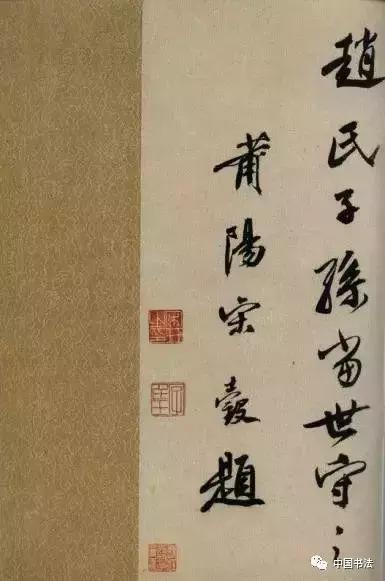 趙氏子孫當世守之
莆陽宋瑴題
中国书法